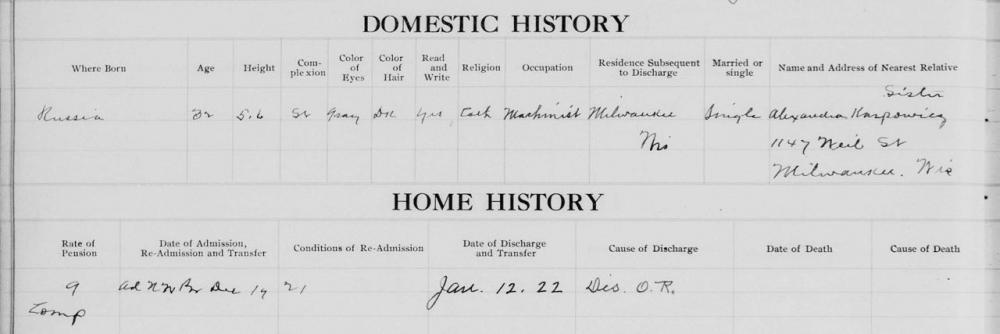 DOMESTIC HISTORY
Where Born Age Height Com-plexion Color of Eyes Color of Hair Read and Write Religion Occupation Residence Subsequent to Discharge Married or single Name and Address of Nearest Relative
Sister
Russia 32 5.6 Gray Dk yes Cath Machinist Milwaukee Single Alexandra Kaspowicz
Wis 1147 Weil St
Milwaukee. Wis
HOME HISTORY
Rate of Pension Date of Admission, Re-Admission and Transfer Conditions of Re-Admission Date of Discharge and Transfer Cause of Discharge Date of Death Cause of Death
9 ad N W Br Dec 14 21 Jan. 12. 22 Dis. O.R.
Comp